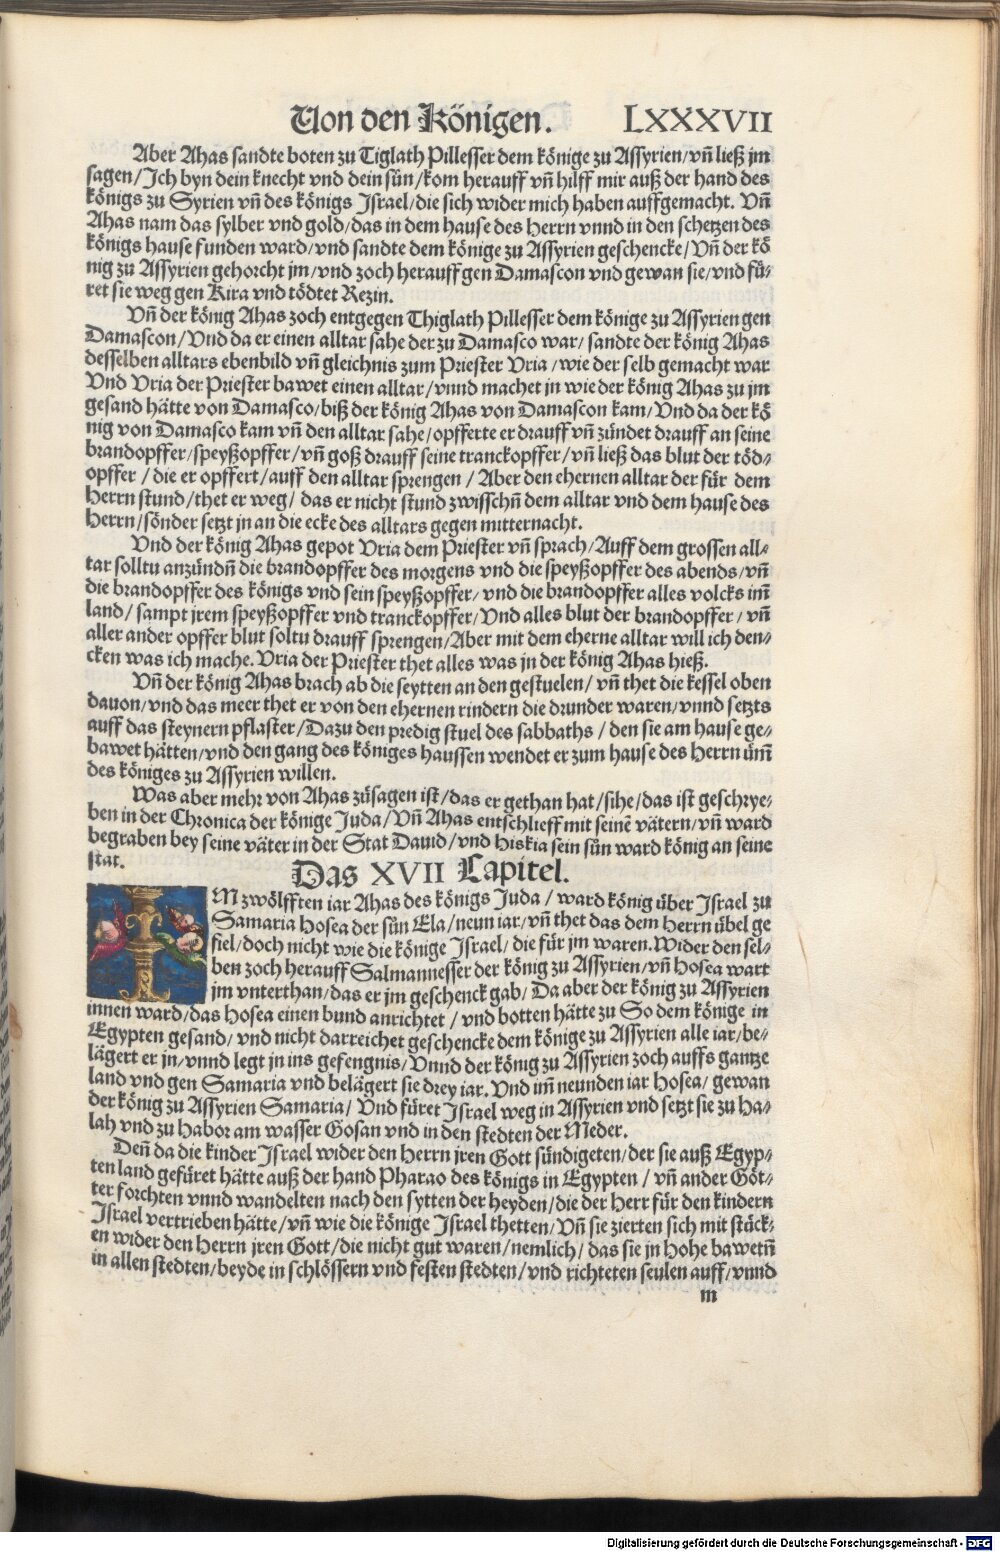 Von den Königen. LXXXVII
Aber Ahas sandte boten zu Tiglath Pillesser dem könige zu Assyrien/vñ ließ jm
sagen/Ich byn dein knecht vnd dein sün/kom herauff vñ hilff mir auß der hand des
königs zu Syrien vñ des königs Israel/die sich wider mich haben auffgemacht. Vñ
Ahas nam das sylber vnd gold/das in dem hause des Herrn vnnd in den schetzen des
königs hause funden ward/vnd sandte dem könige zu Assyrien geschencke/Vñ der kö
nig zu Assyrien gehorcht jm/vnd zoch herauff gen Damascon vnd gewan sie/vnd fü⸗
ret sie weg gen Kira vnd tödtet Rezin.
Vñ der könig Ahas zoch entgegen Thiglath Pillesser dem könige zu Assyrien gen
Damascon/Vnd da er einen alltar sahe der zu Damasco war/ sandte der könig Ahas
desselben alltars ebenbild vñ gleichnis zum Priester Vria /wie der selb gemacht war
Vnd Vria der Priester bawet einen alltar/vnnd machet jn wie der könig Ahas zu jm
gesand hätte von Damasco/biß der könig Ahas von Damascon kam/Vnd da der kö
nig von Damasco kam vñ den alltar sahe/opfferte er drauff vñ zündet drauff an seine
brandopffer/speyßopffer/vñ goß drauff seine tranckopffer/vñ ließ das blut der töd⸗
opffer / die er opffert/auff den alltar sprengen / Aber den ehernen alltar der für dem
Herrn stund/thet er weg/ das er nicht stund zwisschñ dem alltar vnd dem hause des
Herrn/sönder setzt jn an die ecke des alltars gegen mitternacht.
Vnd der könig Ahas gepot Vria dem Priester vñ sprach/Auff dem grossen all⸗
tar solltu anzündñ die brandopffer des morgens vnd die speyßopffer des abends/vñ
die brandopffer des königs vnd sein speyßopffer/ vnd die brandopffer alles volcks im̃
land/ sampt jrem speyßopffer vnd tranckopffer/Vnd alles blut der brandopffer / vñ
aller ander opffer blut soltu drauff sprengen/Aber mit dem eherne alltar will ich den⸗
cken was ich mache. Vria der Priester thet alles was jn der könig Ahas hieß.
Vñ der könig Ahas brach ab die seytten an den gestuelen/ vñ thet die kessel oben
dauon/vnd das meer thet er von den ehernen rindern die drunder waren/vnnd setzts
auff das steynern pflaster/Dazu den predig stuel des sabbaths / den sie am hause ge⸗
bawet hätten/vnd den gang des königes haussen wendet er zum hause des Herrn üm̃
des königes zu Assyrien willen.
Was aber mehr von Ahas züsagen ist/das er gethan hat/sihe/das ist geschrye⸗
ben in der Chronica der könige Juda/Vñ Ahas entschlieff mit seinẽ vätern/vñ ward
begraben bey seine väter in der Stat Dauid/vnd Hiskia sein sün ward könig an seine
stat.
Das XVII Capitel.
IM zwölfften iar Ahas des königs Juda / ward könig über Israel zu
Samaria Hosea der sün Ela/neun iar/vñ thet das dem Herrn übel ge
fiel/doch nicht wie die könige Israel/ die für jm waren.Wider den sel⸗
ben zoch herauff Salmannesser der könig zu Assyrien/vñ Hosea wart
jm vnterthan/das er jm geschenck gab/ Da aber der könig zu Assyrien
innen ward/das Hosea einen bund anrichtet / vnd botten hätte zu So dem könige in
Egypten gesand/ vnd nicht darreichet geschencke dem könige zu Assyrien alle iar/be⸗
lägert er jn/vnnd legt jn ins gefengnis/Vnnd der könig zu Assyrien zoch auffs gantze
land vnd gen Samaria vnd belägert sie drey iar. Vnd im̃ neunden iar Hosea/ gewan
der könig zu Assyrien Samaria/ Vnd füret Israel weg in Assyrien vnd setzt sie zu Ha⸗
lah vnd zu Habor am wasser Gosan vnd in den stedten der Meder.
Deñ da die kinder Israel wider den Herrn jren Gott sündigeten/der sie auß Egyp⸗
ten land gefüret hätte auß der hand Pharao des königs in Egypten / vñ ander Göt⸗
ter forchten vnnd wandelten nach den sytten der heyden/die der Herr für den kindern
Israel vertrieben hätte/vñ wie die könige Israel thetten/Vñ sie zierten sich mit stück⸗
en wider den Herrn jren Gott/die nicht gut waren/nemlich/ das sie jn Hohe bawetñ
in allen stedten/beyde in schlössern vnd festen stedten/vnd richteten seulen auff/vnnd
m
Digitalisierung gefördert durch die Deutsche Forschungsgemeinschaft - DFG